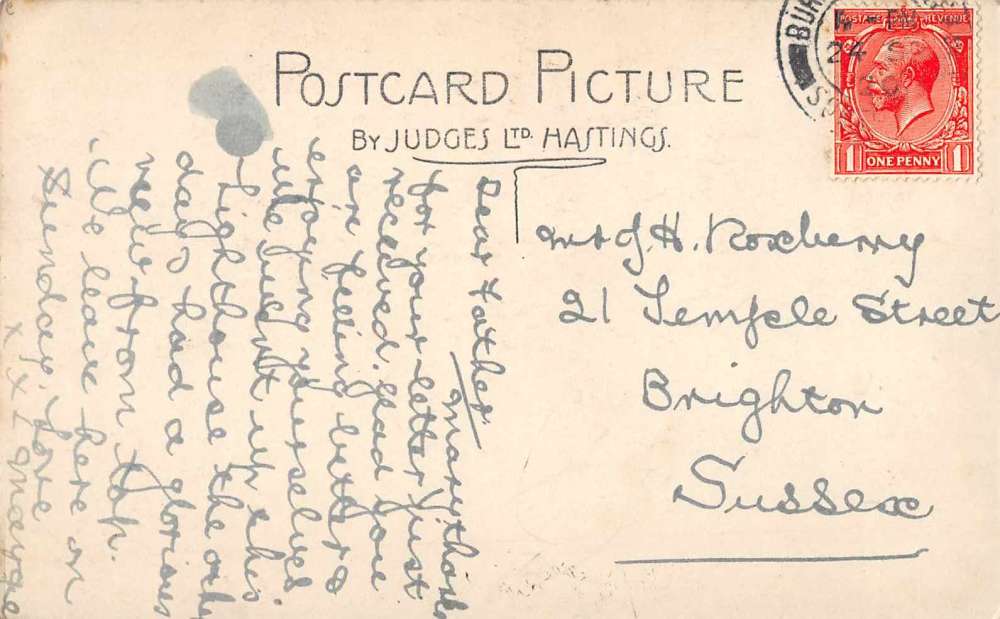 POSTCARD PICTURE
BY JUDGES LTD. HASTINGS.
POSTAGE REVENUE
1 ONE PENNY 1
BUR
24
Mr J. H. Roxberry
21 Temple Street
Brighton
Sussex
Dear Father.
Many thanks
for your letter just
received. Glad you
are feeling better &
enjoying yourselves
We went up the
Lighthouse the other
day, had a glorious
view from top.
We leave here on
Sunday. Love
x x x